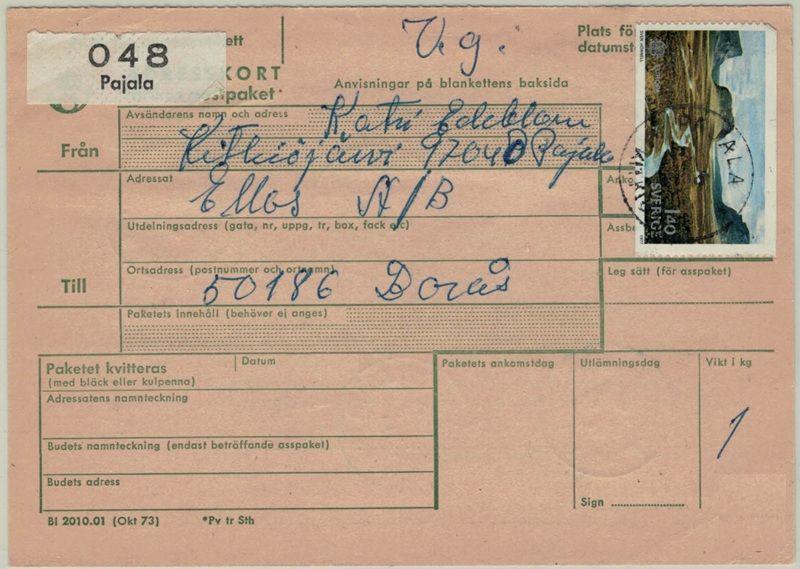 048
Pajala
ett
V.g.
Plats fö
datumst
KORT
Anvisningar på blankettens baksida
sipaket
Avsändarens namn och adress
Katri Eckblom
Från
Kitkiöjärvi 97040 Pajala
Adressat
Ellos A/B
Anko
Utdelningsadress (gata, nr, uppg, tr, box, fack etc)
Assbe
Ortsadress (postnummer och ortnamn)
Leg sätt (för asspaket)
Till
50186 Borås
Pakets innehåll (behöver ej anges)
Paketet kvitteras
(med bläck eller kulpenna)
Datum
Paketets ankomstdag
Utlämningsdag
Vikt i kg
Adressatens namnteckning
1
Budets namnteckning (endast beträffande asspaket)
Budets adress
Sign
BI 2010.01 (Okt 73) *Pv tr Sth
SVERIGE
140
ALA